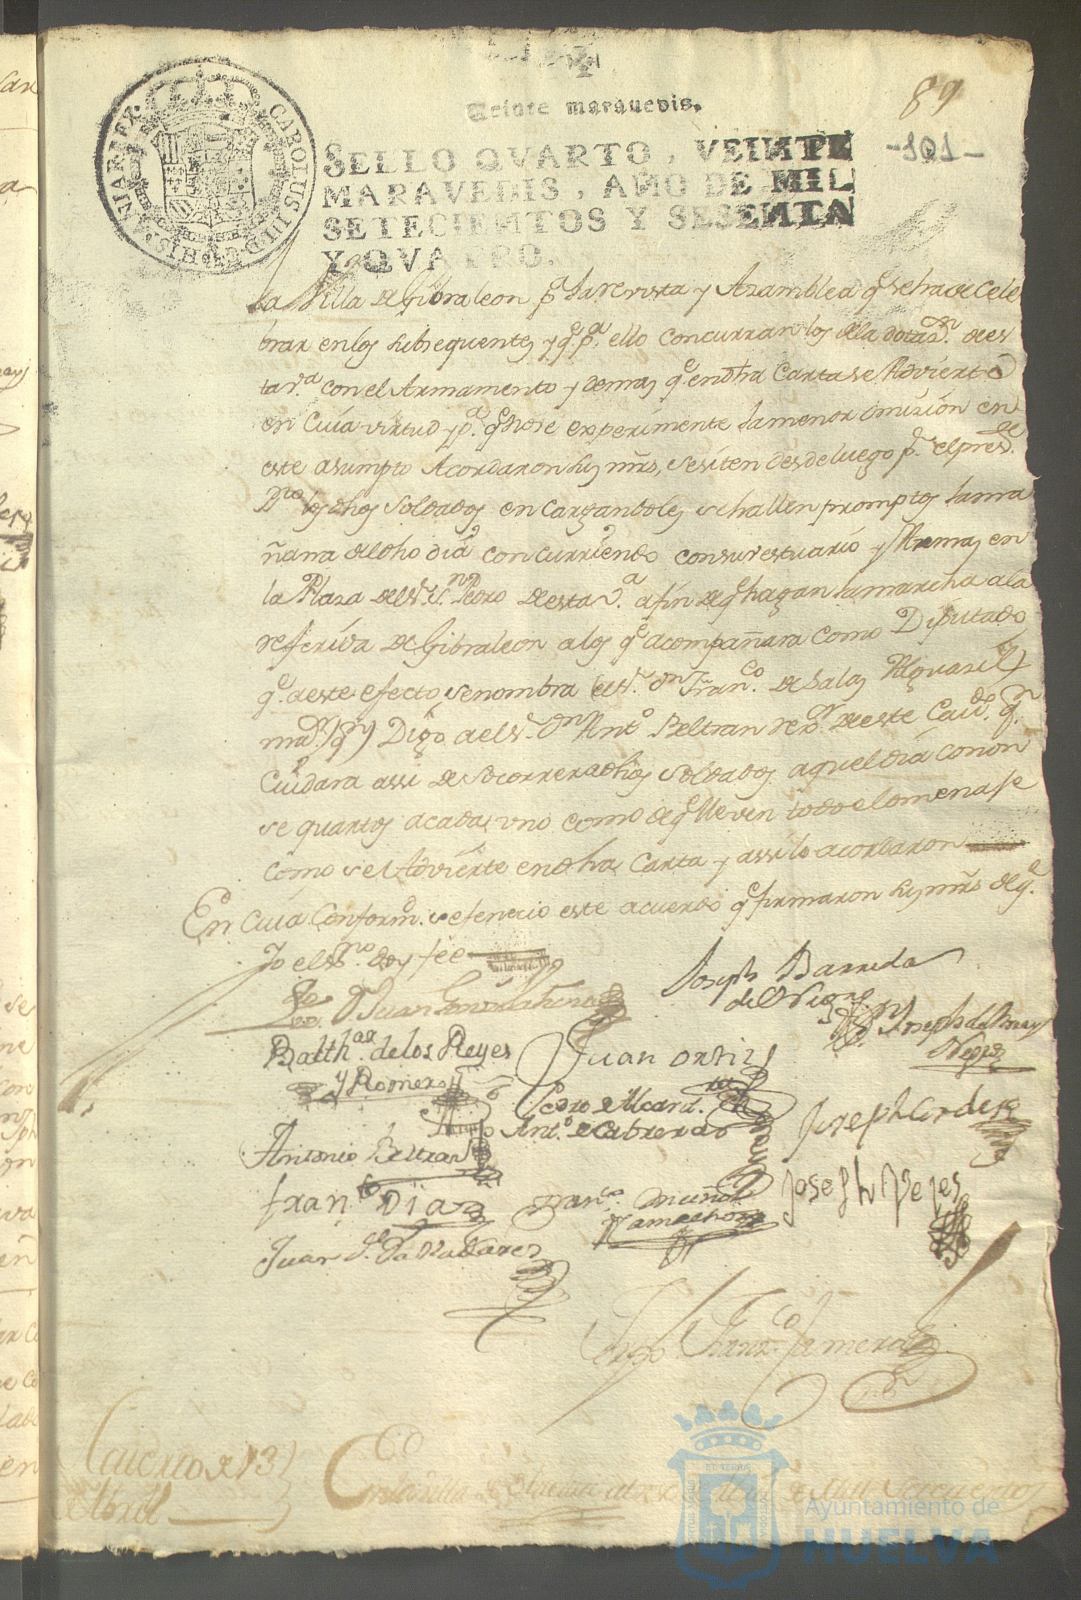 Veinte maravedis.
89
-101-
CAROLUS III D G HISPANIAR REX
SELLO QVARTO, VEINTE
MARAVEDIS, AÑO DE MIL
SETECIENTOS Y SESENTA
Y QVATRO.
la Villa de Gibraleon pª la revista y Asamblea qᵉ se ha de Cele
brar en los subsequentes y qᵉ pª ello concurran los de la dotazⁿ de es
ta vª con el Armamento y demas qᵉ en dha Carta se Advierte
en Cuia virtud y pª qᵉ no se experimente la menor omision en
este asumpto Acordaron sus mrs, se siten desde luego pʳ el presᵗᵉ
los dhos Soldados encargandoles se hallen promptos la ma
ñana del dho dia concurriendo con su vestuario y Armas en
la Plaza del Sʳ Sⁿ Pedro de esta vª a fin de qᵉ hagan la marcha a la
referida de Gibraleon a los qᵉ acompañara como Diputado
qᵉ a este efecto se nombra el Sʳ Dⁿ Franᶜᵒ de Salas Alguazil
maʳ (qᵉ) Digo a el Sʳ Dⁿ Antº Beltran rexᵒʳ de este Cavᵈᵒ qⁿ
Cuidara assi de socorrer a dhos soldados aquel dia con on
se quartos a cada uno como de qᵉ lleven todo el omenaje
como se Advierte en dha Carta y assi lo acordaron
En Cuia Conformᵈ se fenecio este acuerdo qᵉ firmaron sus mrs de qᵉ
Yo el Sⁿᵒ doy fee
Joseph Barreda
Dⁿ Juan
Balthᵃʳ de los Reyes
y Romero
Juan Ortiz
Antº de Cabrera
Joseph Cordero
Antonio Beltran
Franᶜᵒ Diaz
Franᶜᵒ Muñoz
Camacho
Joseph Reyes
Juan
Franᶜᵒ
Cavᵈᵒ de 13
Abril
En la villa de Huelva
Mil Setecientos
Ayuntamiento de
HUELVA